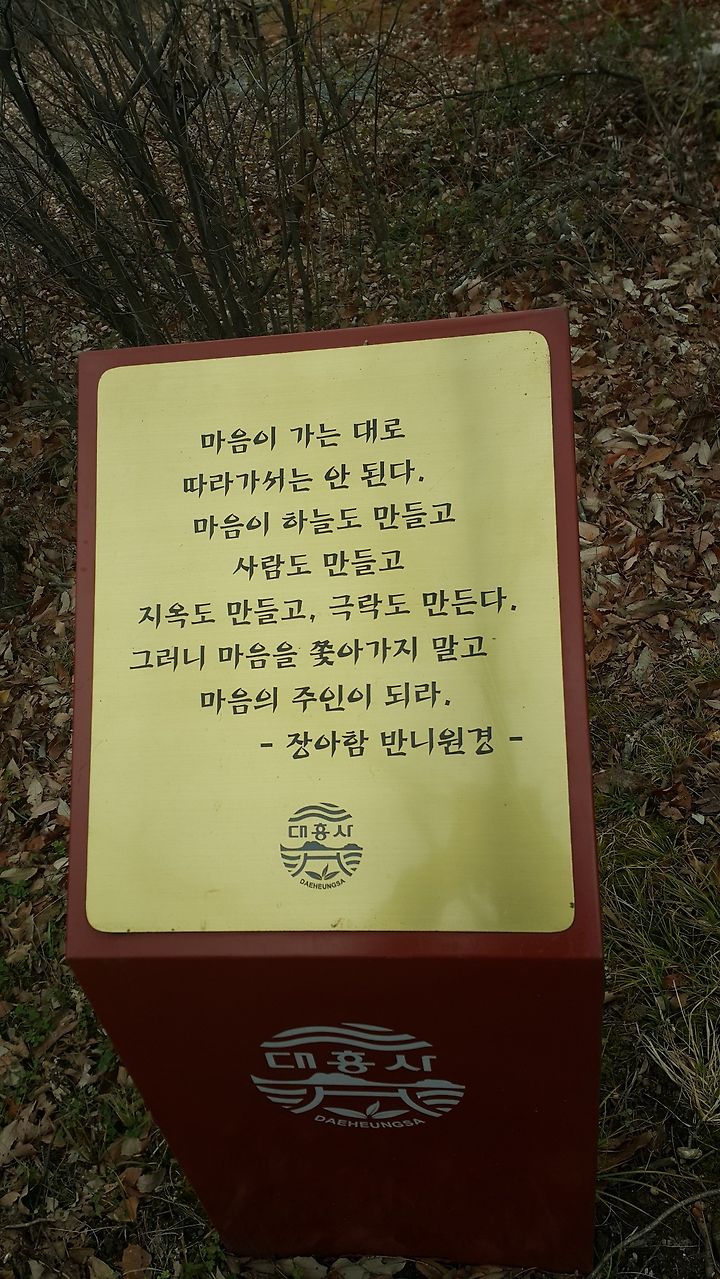 마음이 가는 대로
따라가서는 안 된다.
마음이 하늘도 만들고
사람도 만들고
지옥도 만들고, 극락도 만든다.
그러니 마음을 쫓아가지 말고
마음의 주인이 되라.
- 장아함 반니원경 -
대흥사
DAEHEUNGSA
대흥사
DAEHEUNGSA